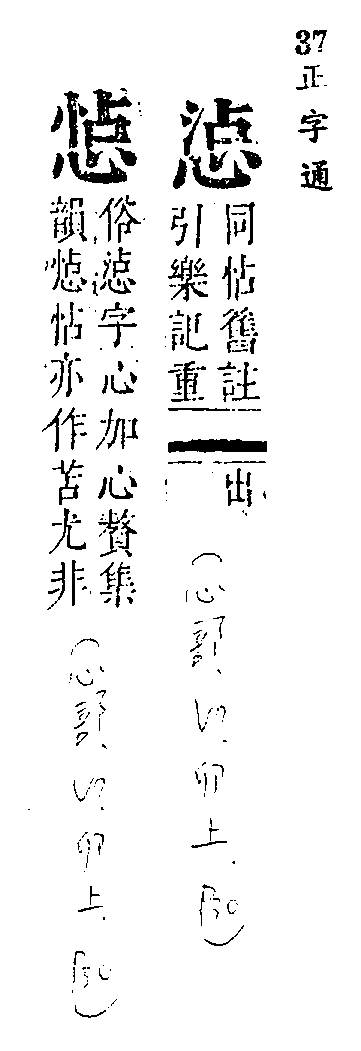 37
正字通
惉
同怗舊註
引樂記重
出
(心部.
卯上.
俗惉字心加心贅集
韻怗亦作苫尤非
(心部.
卯上.